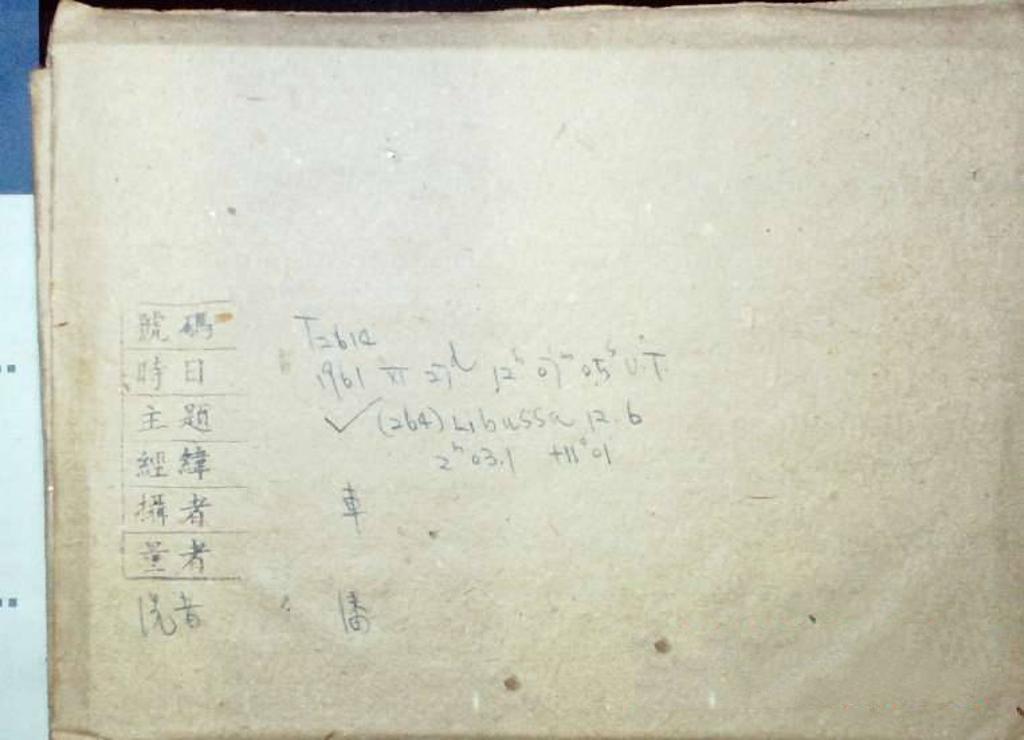 號碼 T2614
時日 1961 XI 27d 12h 07m 05s U.T.
主題 ✓ (264) Libussa 12.6
經緯 2h 03.1 +11° 01
攝者 車
量者
洗者 潘